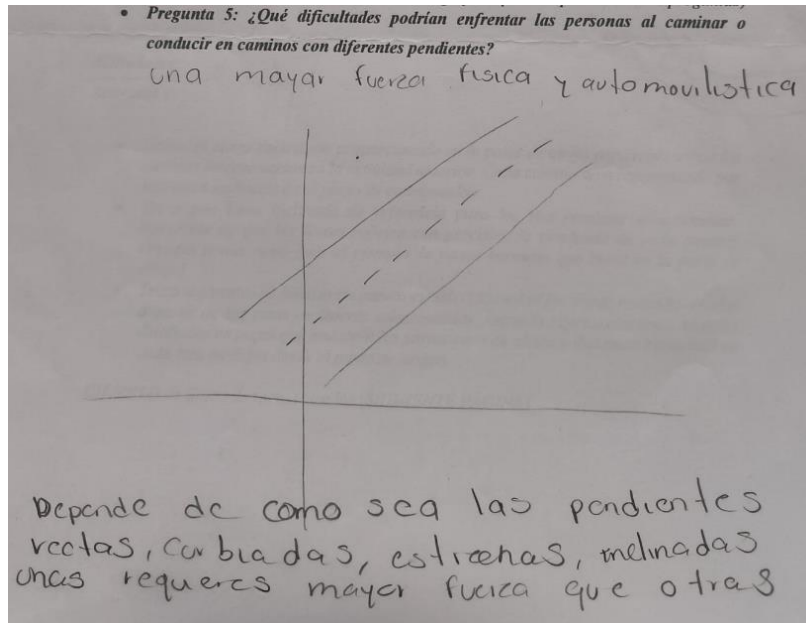 • Pregunta 5: ¿Qué dificultades podrían enfrentar las personas al caminar o
conducir en caminos con diferentes pendientes?
una mayar fuerza fisica y automovilistica
Depende de como sea las pendientes
rectas, curbiadas, estrechas, inclinadas
unas requeres mayor fuerza que otras